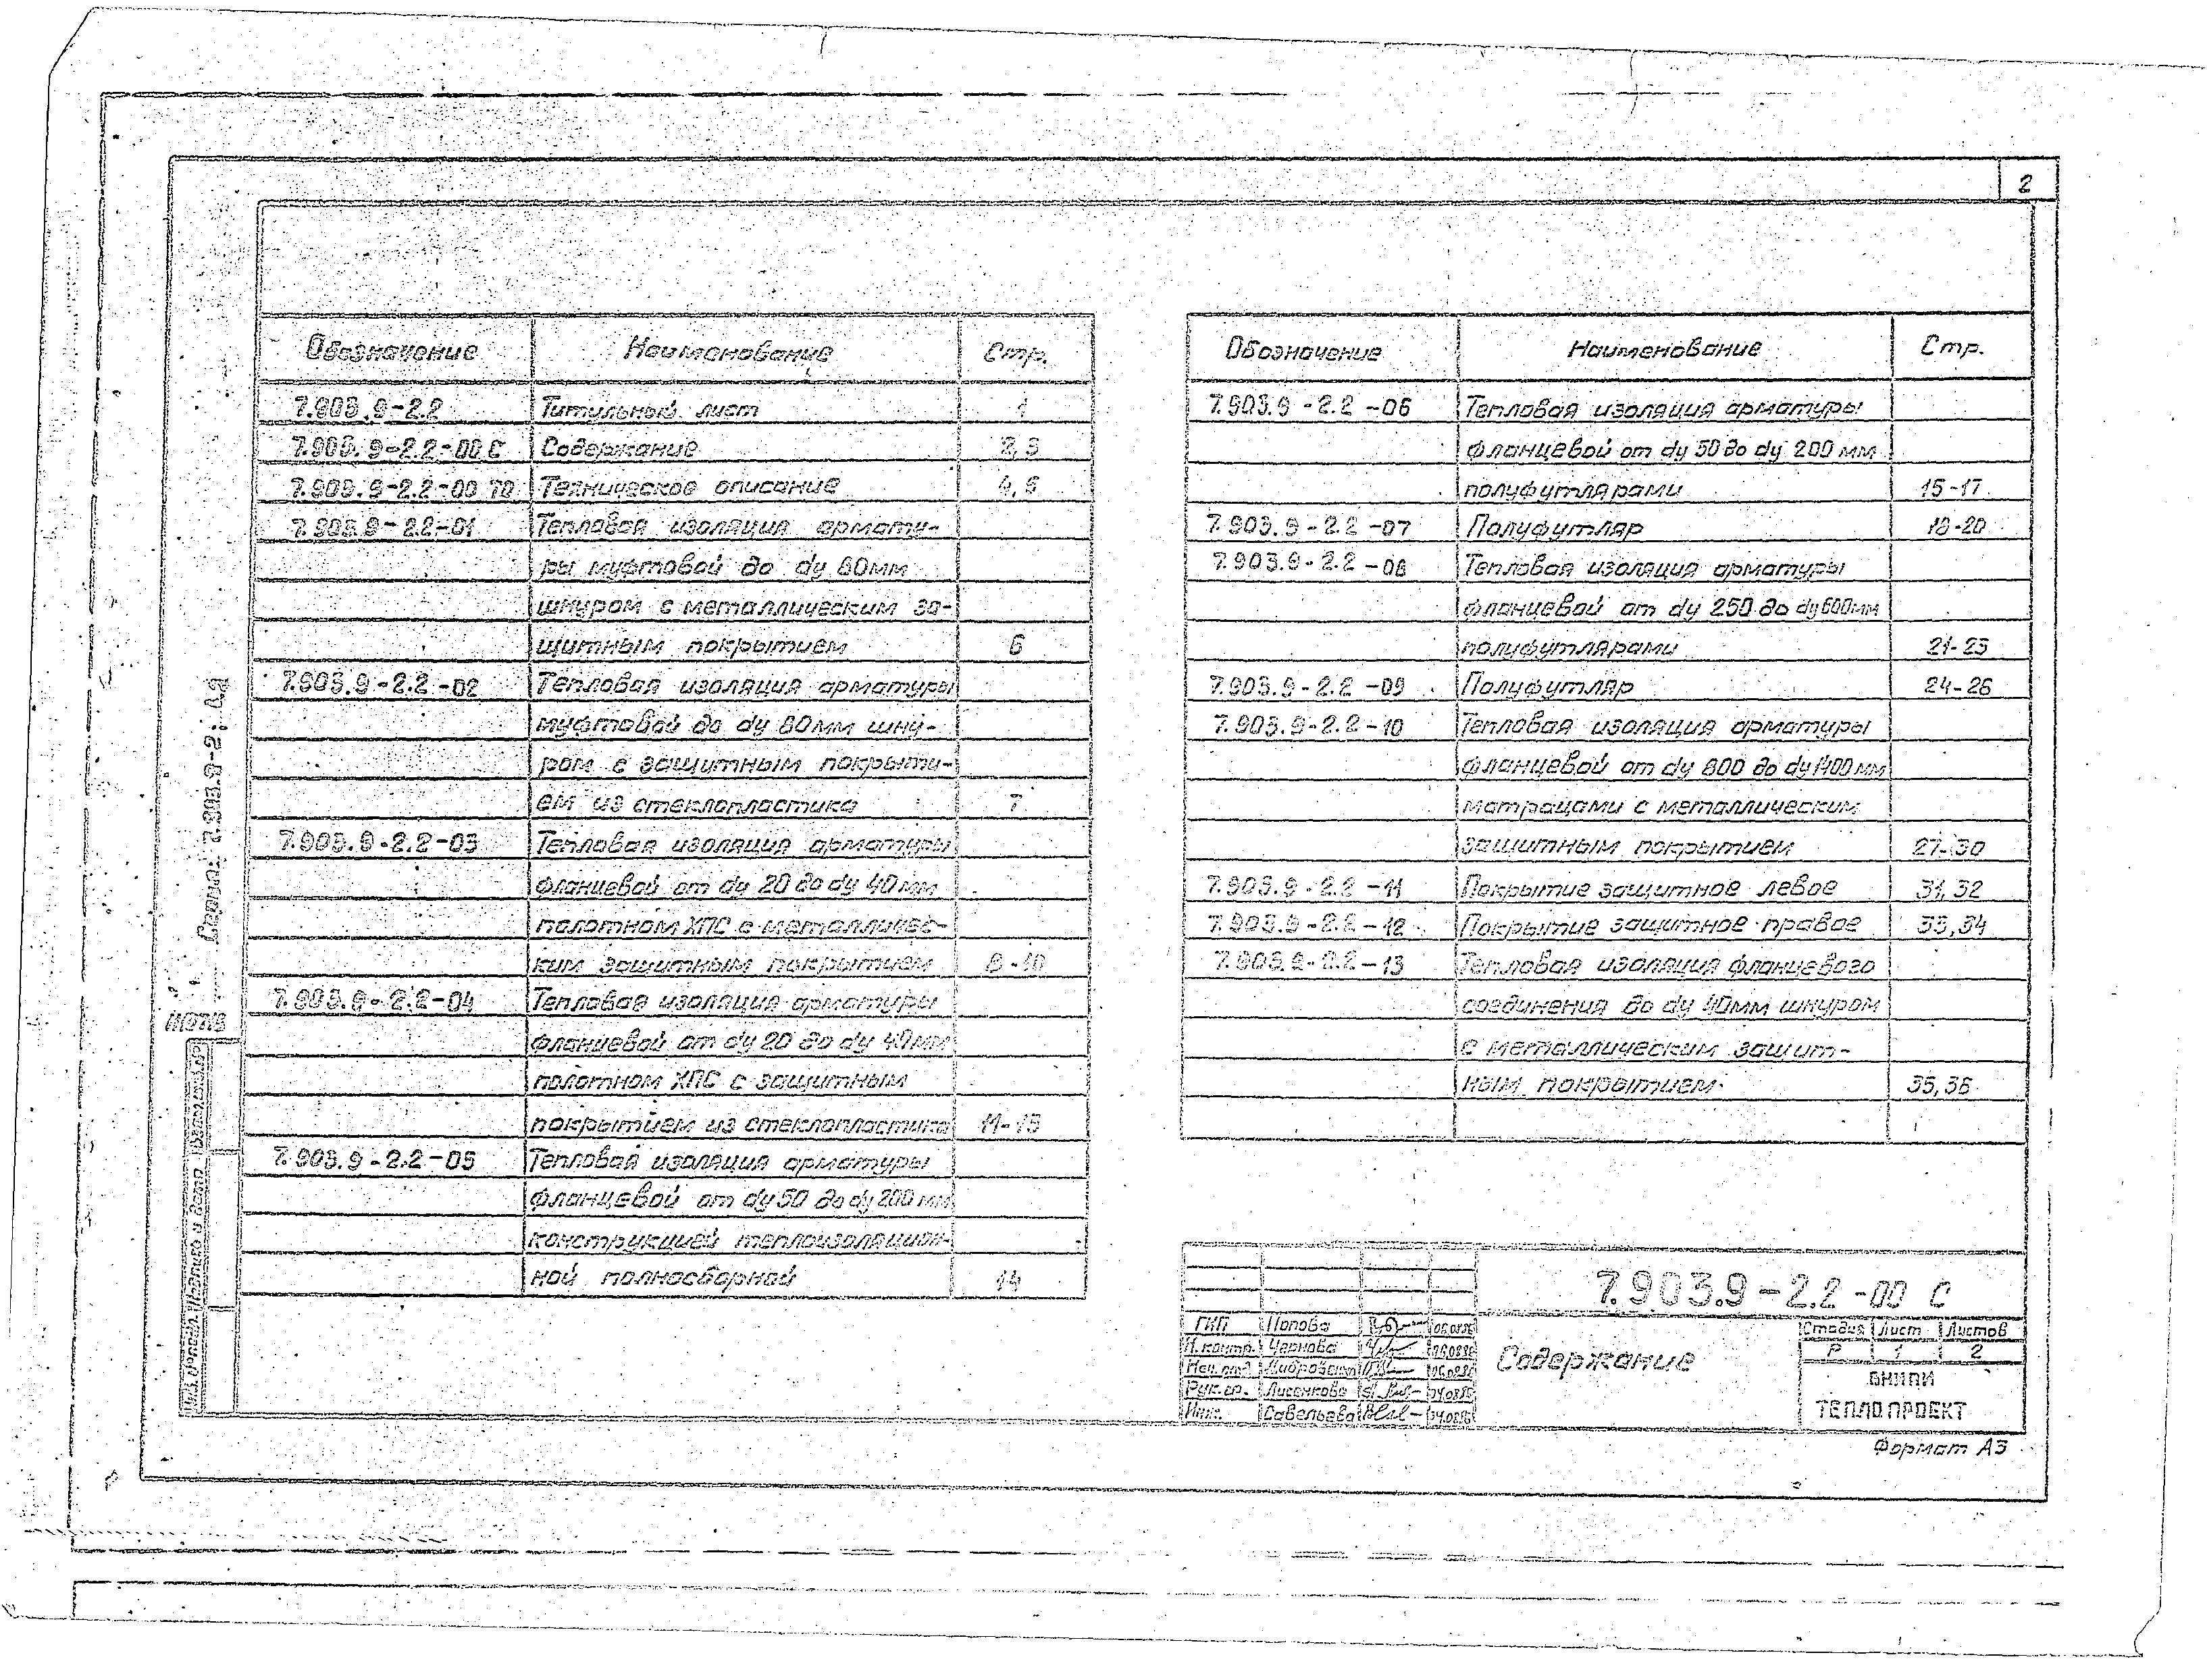 2
Обозначение Наименование Стр.
7.903.9-2.2 Титульный лист 1
7.903.9-2.2-00 С Содержание 2,3
7.903.9-2.2-00 ТО Техническое описание 4,5
7.903.9-2.2-01 Тепловая изоляция армату-
ры муфтовой до dу 80мм
шнуром с металлическим за-
щитным покрытием 6
7.903.9-2.2-02 Тепловая изоляция арматуры
муфтовой до dу 80мм шну-
ром с защитным покрыти-
ем из стеклопластика 7
7.903.9-2.2-03 Тепловая изоляция арматуры
фланцевой от dу 20 до dу 40мм
полотном ХПС с металличес-
ким защитным покрытием 8-10
7.903.9-2.2-04 Тепловая изоляция арматуры
фланцевой от dу 20 до dу 40мм
полотном ХПС с защитным
покрытием из стеклопластика 11-13
7.903.9-2.2-05 Тепловая изоляция арматуры
фланцевой от dу 50 до dу 200 мм
конструкцией теплоизоляцион-
ной полносборной 14
Обозначение Наименование Стр.
7.903.9-2.2-06 Тепловая изоляция арматуры
фланцевой от dу 50 до dу 200 мм
полуфутлярами 15-17
7.903.9-2.2-07 Полуфутляр 18-20
7.903.9-2.2-08 Тепловая изоляция арматуры
фланцевой от dу 250 до dу 600мм
полуфутлярами 21-23
7.903.9-2.2-09 Полуфутляр 24-26
7.903.9-2.2-10 Тепловая изоляция арматуры
фланцевой от dу 800 до dу 1400 мм
матрацами с металлическим
защитным покрытием 27-30
7.903.9-2.2-11 Покрытие защитное левое 31,32
7.903.9-2.2-12 Покрытие защитное правое 33,34
7.903.9-2.2-13 Тепловая изоляция фланцевого
соединения до dу 40мм шнуром
с металлическим защит-
ным покрытием 35,36
7.903.9-2.2-00 С
Содержание
ГИП Попова 06.08.86
Н.контр. Чернова 06.08.86
Нач.отд. 06.08.86
Рук.гр. Лисенкова 04.08.86
Инж. Савельева 04.08.86
Стадия Лист Листов
Р 1 2
ВНИПИ
ТЕПЛОПРОЕКТ
Формат А3
Серия 7.903.9-2;
Инв.№подл. Подпись и дата Взам.инв.№